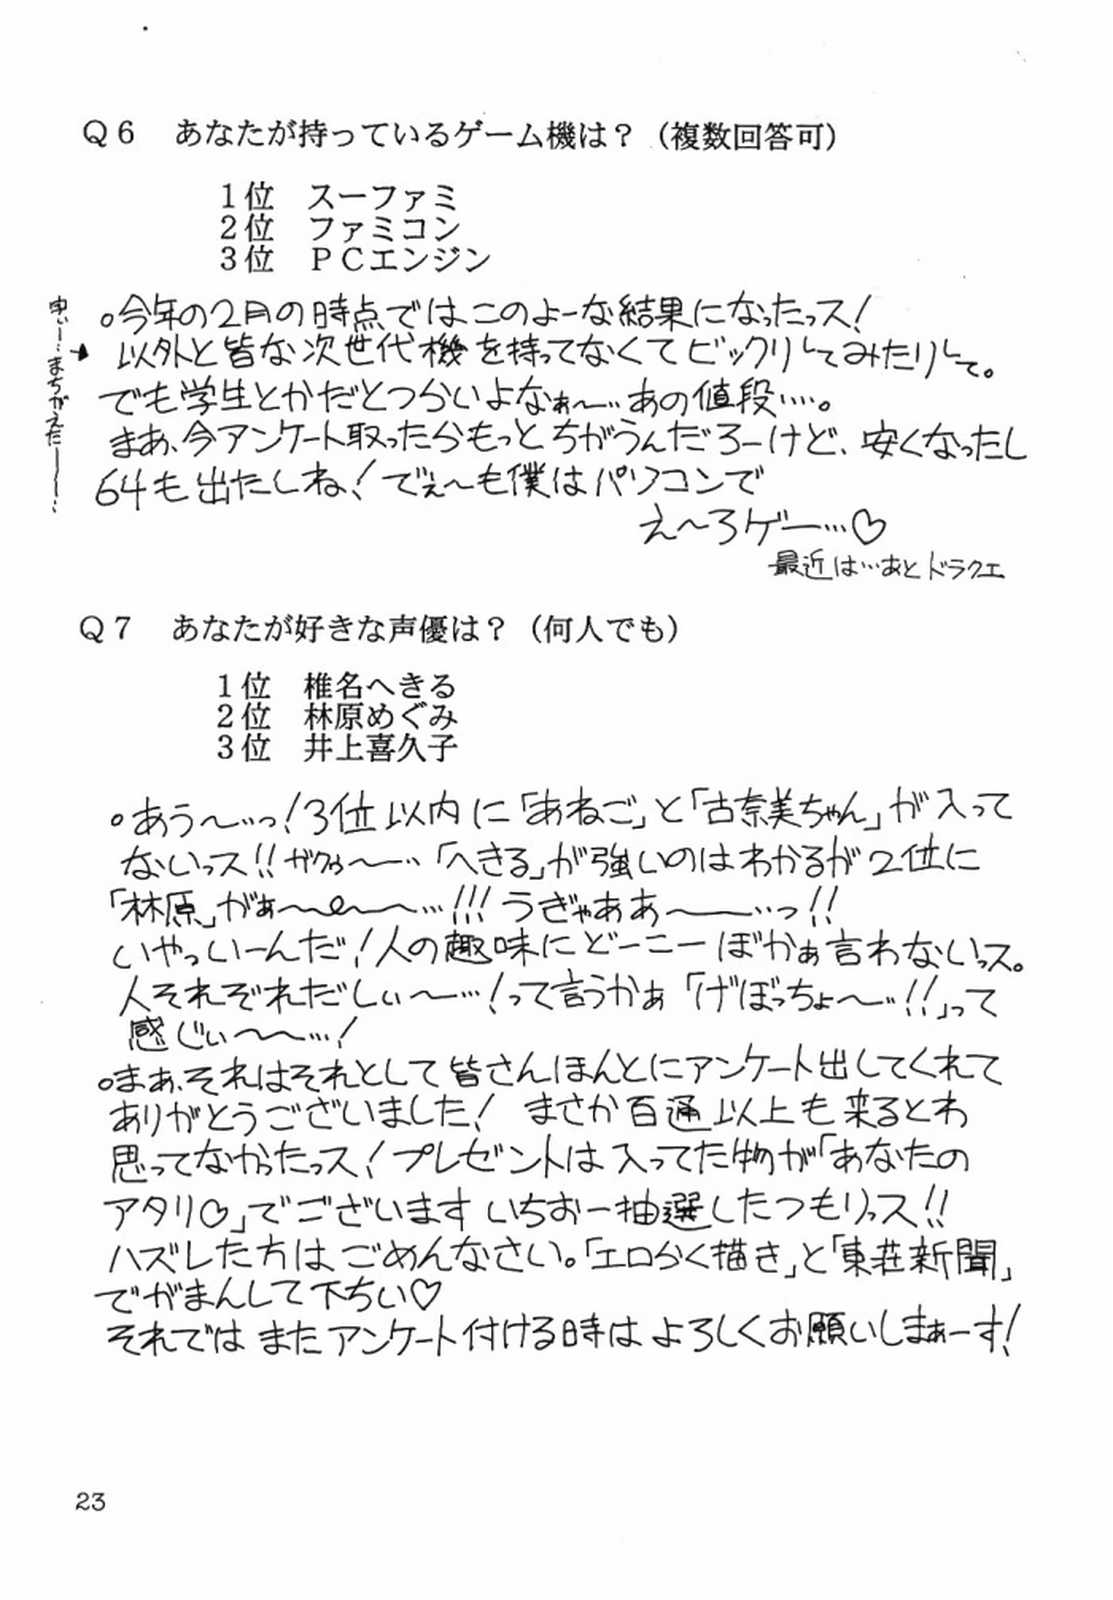 Q6 あなたが持っているゲーム機は？（複数回答可）
1位 スーファミ
2位 ファミコン
3位 PCエンジン
。今年の2月の時点ではこのよーな結果になったっス！
以外と皆な次世代機を持ってなくてビックリしてみたりして。
でも学生とかだとつらいよなぁ〜…あの値段….。
まぁ、今アンケート取ったらもっとちがうんだろーけど、安くなったし
64も出たしね！でぇ〜も僕はパソコンで
え〜ろゲー…♡
最近は…あとドラクエ
まちがえたー
Q7 あなたが好きな声優は？（何人でも）
1位 椎名へきる
2位 林原めぐみ
3位 井上喜久子
。あう〜…っ！3位以内に「あねご」と「古奈美ちゃん」が入って
ないっス！！ガクゥ〜…「へきる」が強いのはわかるが2位に
「林原」がぁ〜〜〜…！！！うぎゃああ〜…っ！！
いやっいーんだ！人の趣味にどーこーぼかぁ言わないっス。
人それぞれだしぃ〜…！って言うかぁ「げぼっちょ〜…！！」って
感じぃ〜〜…！
。まぁ、それはそれとして皆さんほんとにアンケート出してくれて
ありがとうございました！まさか百通以上も来るとわ
思ってなかったっス！プレゼントは入ってた物が「あなたの
アタリ♡」でございますいちおー抽選したつもりっス！！
ハズレした方はごめんなさい。「エロらく描き」と「東荘新聞」
でがまんして下ちぃ♡
それではまたアンケート付ける時はよろしくお願いしまぁーす！
23